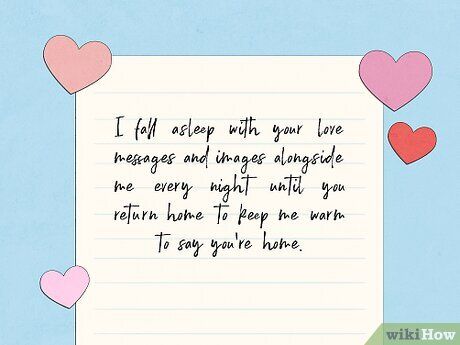 I fall asleep with your love
messages and images alongside
me every night until you
return home to keep me warm
to say you're home.
wikiHow